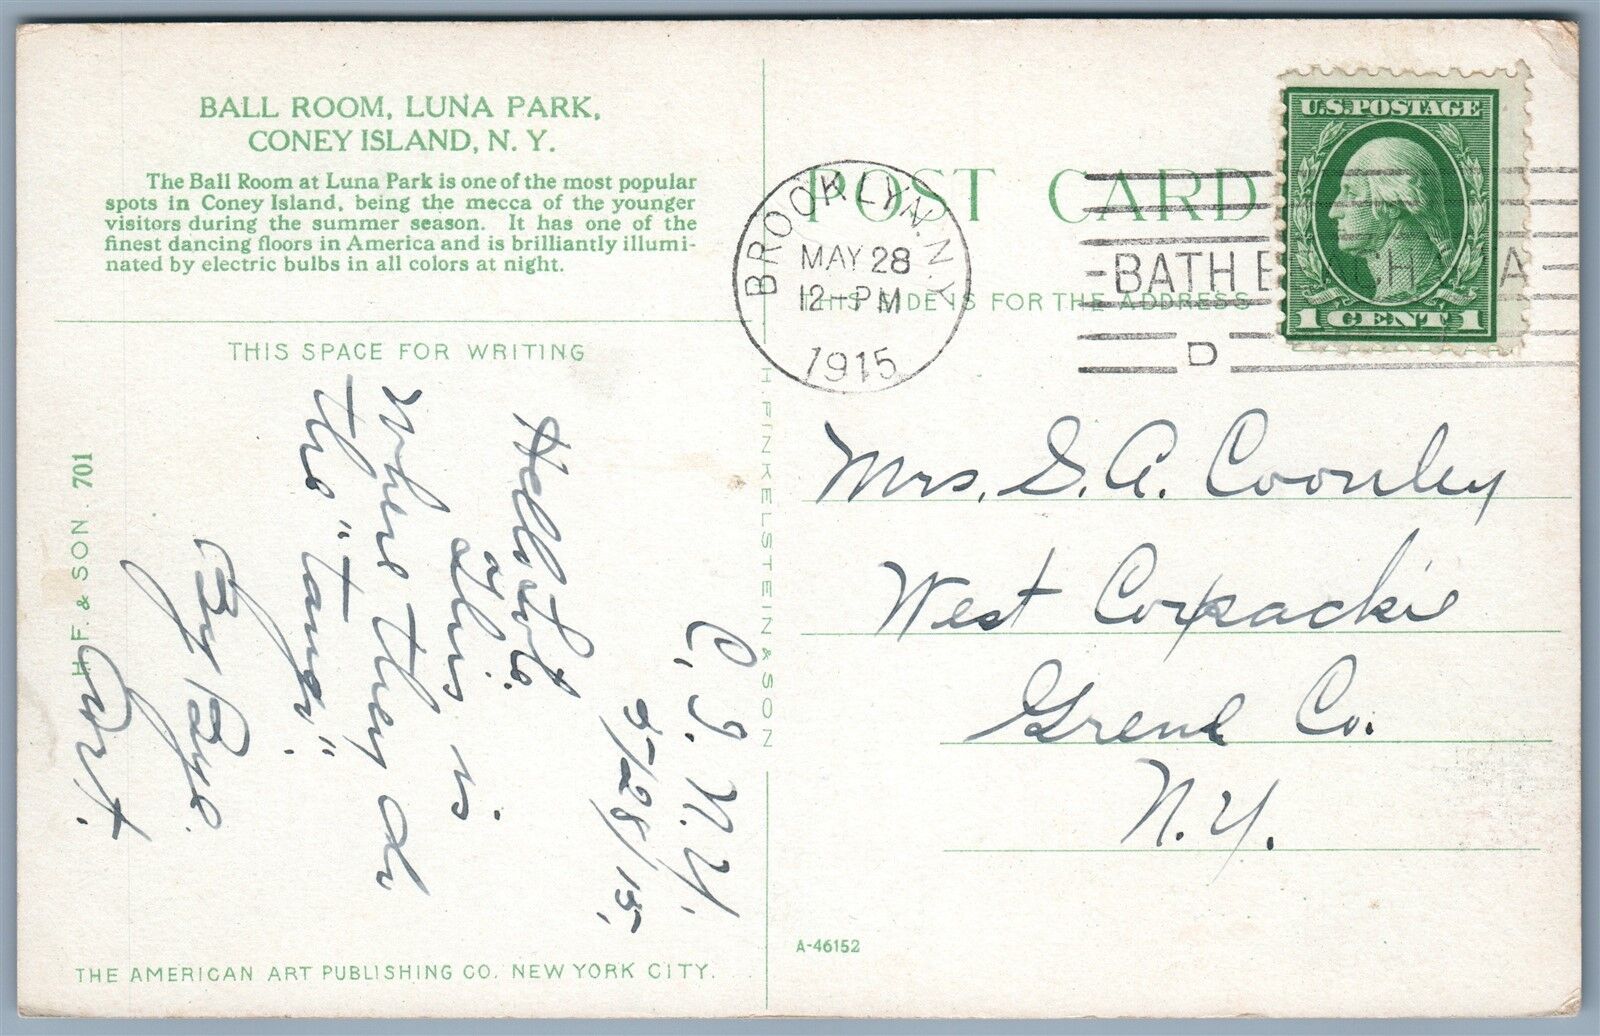 BALL ROOM, LUNA PARK,
CONEY ISLAND, N. Y.
The Ball Room at Luna Park is one of the most popular
spots in Coney Island, being the mecca of the younger
visitors during the summer season. It has one of the
finest dancing floors in America and is brilliantly illumi-
nated by electric bulbs in all colors at night.
THIS SPACE FOR WRITING
C. I. N. Y.
5/28/15,
This is
where they do
the "tango".
By Bye.
H. F. & SON. 701
H. FINKELSTEIN & SON
THE AMERICAN ART PUBLISHING CO. NEW YORK CITY.
POST CARD
THIS SIDE IS FOR THE ADDRESS
BROOKLYN, N.Y.
MAY 28
12-PM
1915
BATH BEACH STA
D
U.S. POSTAGE
1 CENT 1
Mrs. S. A. Coonley
West Coxsackie
Grene Co.
N. Y.
A-46152